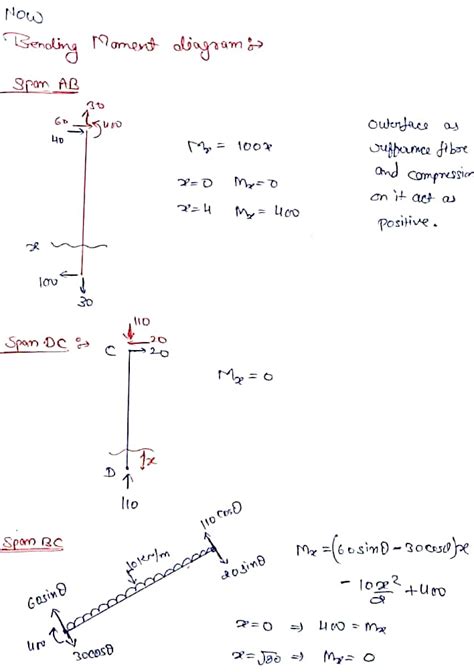 NOW
Bending Moment diagram :→
Span AB
30
60 400
40
Mx = 100x
x=0 Mx=0
x=4 Mx=400
x
100
30
Outerface as
reference fibre
and compression
on it act as
positive.
Span DC :→
110
C 20
20
Mx = 0
x
D
110
Span BC
110cosθ
10kN/m
20sinθ
60sinθ
400
30cosθ
Mx = (60sinθ - 30cosθ)x
- 10x²/2 + 400
x=0 ⇒ 400 = Mx
x=√80 ⇒ Mx = 0